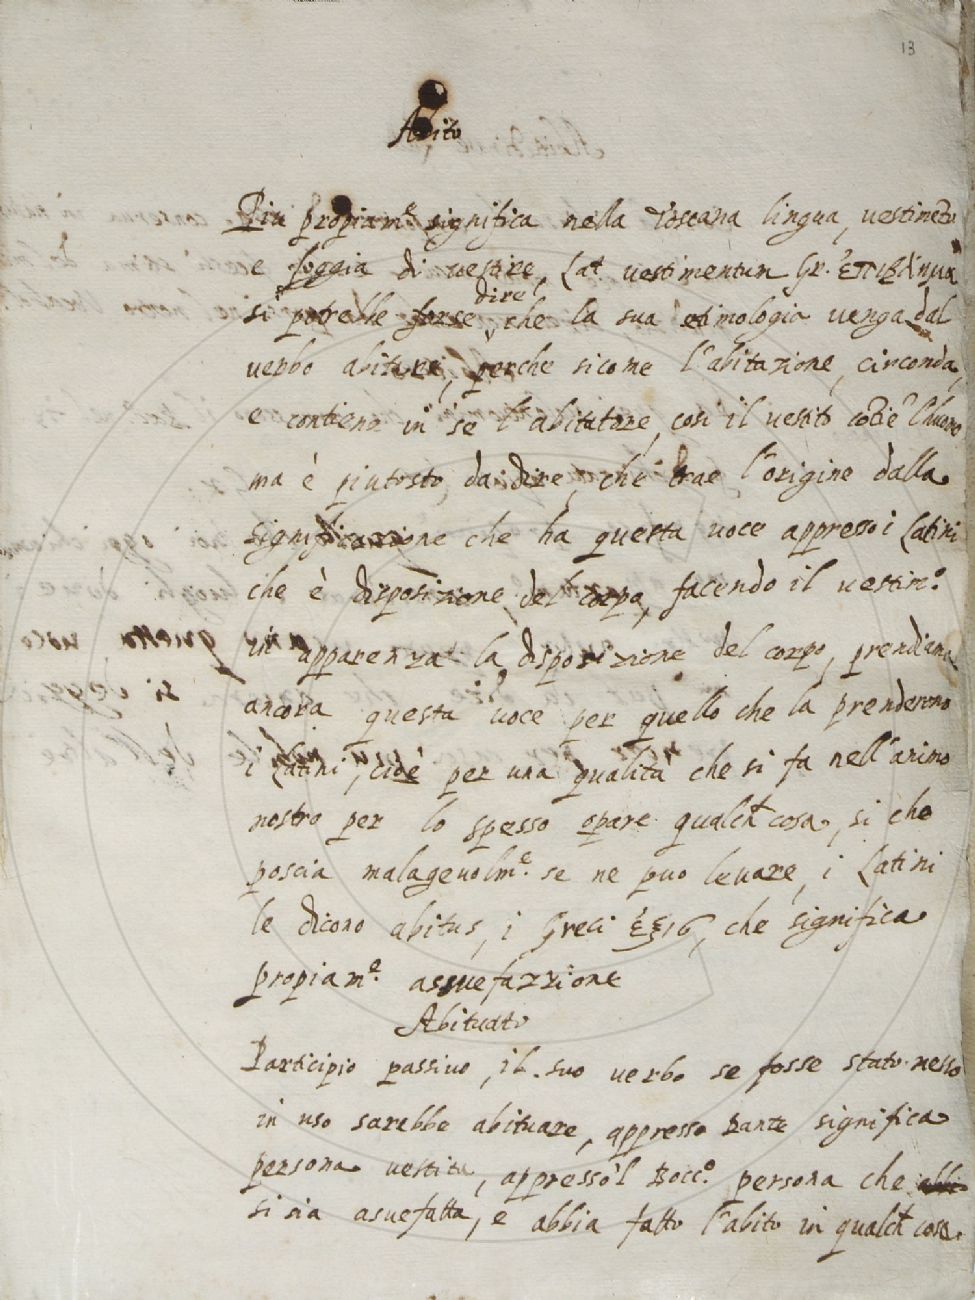 13
Abito
Piu propiam.e significa nella Toscana lingua, vestimẽto
e foggia di vestire, Lat. vestimentum Gr. ἐπίβλημα
si potrebbe forse dire, che la sua etimologia venga dal
verbo abitare, perche sicome l'abitazione, circonda,
e contiene in se l'abitatore, cosi il vestito cotiẽ l'huomo
ma è piutosto, da dire, che trae l'origine dalla
significazione che ha questa voce appresso i Latini
che è disposizione del corpo, facendo il vestim.o
in apparenza la disposizione del corpo, prendiamo
ancora questa voce per quello che la prenderono
i Latini, cioè per una qualità che si fa nell'animo
nostro per lo spesso opare qualch cosa, si che
poscia malagevolm.e se ne puo levare, i Latini
le dicono abitus, i Greci ἕξις, che significa
propiam.e assuefazzione
Abituato
Participio passivo, il suo verbo se fosse stato messo
in uso sarebbe abituare, appresso Dante significa
persona vestita, appresso 'l Bocc.o persona che
si sia asuefatta, e abbia fatto l'abito in qualch cosa.